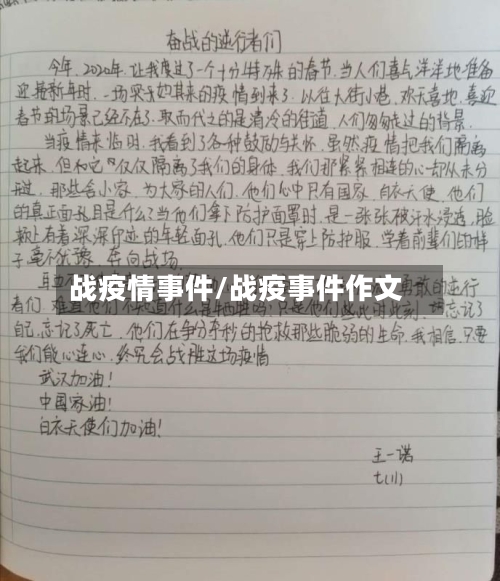 奋战的逆行者们
今年,2020年,让我度过了一个十分特殊的春节,当人们喜气洋洋地准备
迎接新年时,一场突如其来的疫情到来了,以往大街小巷,欢天喜地,喜迎
春节的场景已经不在了,取而代之的是清冷的街道,人们匆匆走过的背景.
当疫情来临时,我看到了各种鼓励与关怀,虽然疫情把我们隔离
起来,但和它"仅仅隔离了我们的身体,我们那紧紧相连的心却从未分
开过,那些舍小家,为大家的人们,他们心中只有国家,白衣天使,他们
的真正面孔是什么?当他们拿下防护面罩时,是一张张被汗水浸透,脸
颊上有着深深印迹的年轻面孔,他们只是穿上防护服,学着前辈们的样
子毫不犹豫,奔向战场.
战疫情事件/战疫事件作文
的逆行
者们,难道他们不知道什么是牺牲吗?只是他们些此时此刻,忘记了
自己,忘记了死亡,他们在争分夺秒的抢救那些脆弱的生命,我相信,只要
我们能心连心,终究会战胜这场疫情
武汉加油!
中国加油!
白衣天使们加油!
王一诺
七(11)